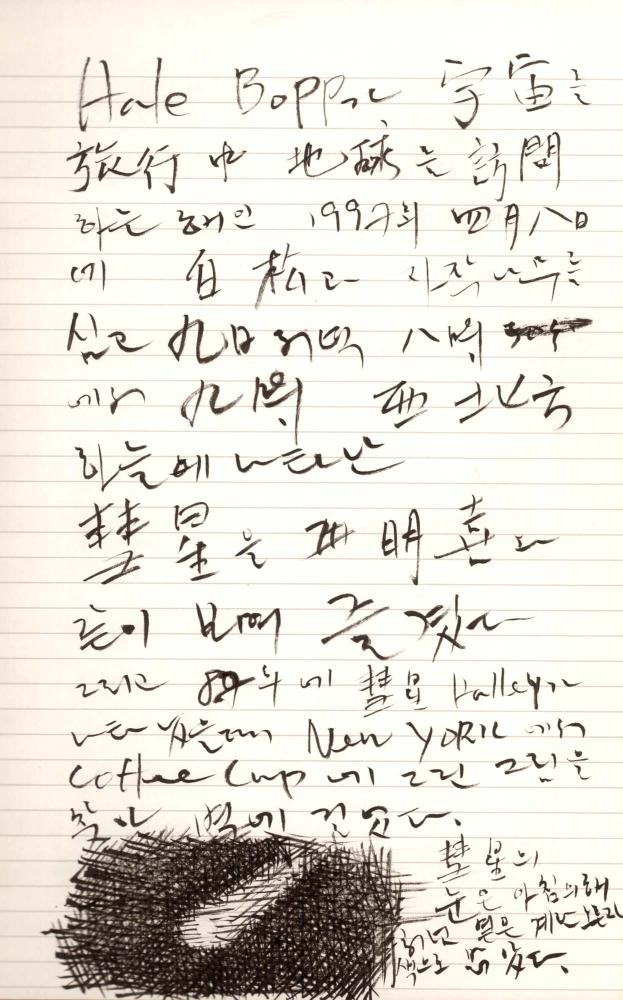 Hale Bopp가 宇宙를
旅行中 地球를 訪問
하는 해인 1997의 四月八日
에 白松과 자작나무를
심고 九日저녁 八時
에서 九時 西北쪽
하늘에 나타난
彗星을 明熹와
같이 보며 즐겼다
그리고 년에 彗星 Halley가
나타났을때 New YORK에서
Coffee Cup에 그린 그림을
찾아 벽에 걸었다.
彗星의
눈은 아침의해
붉은 계란노른자
색으로